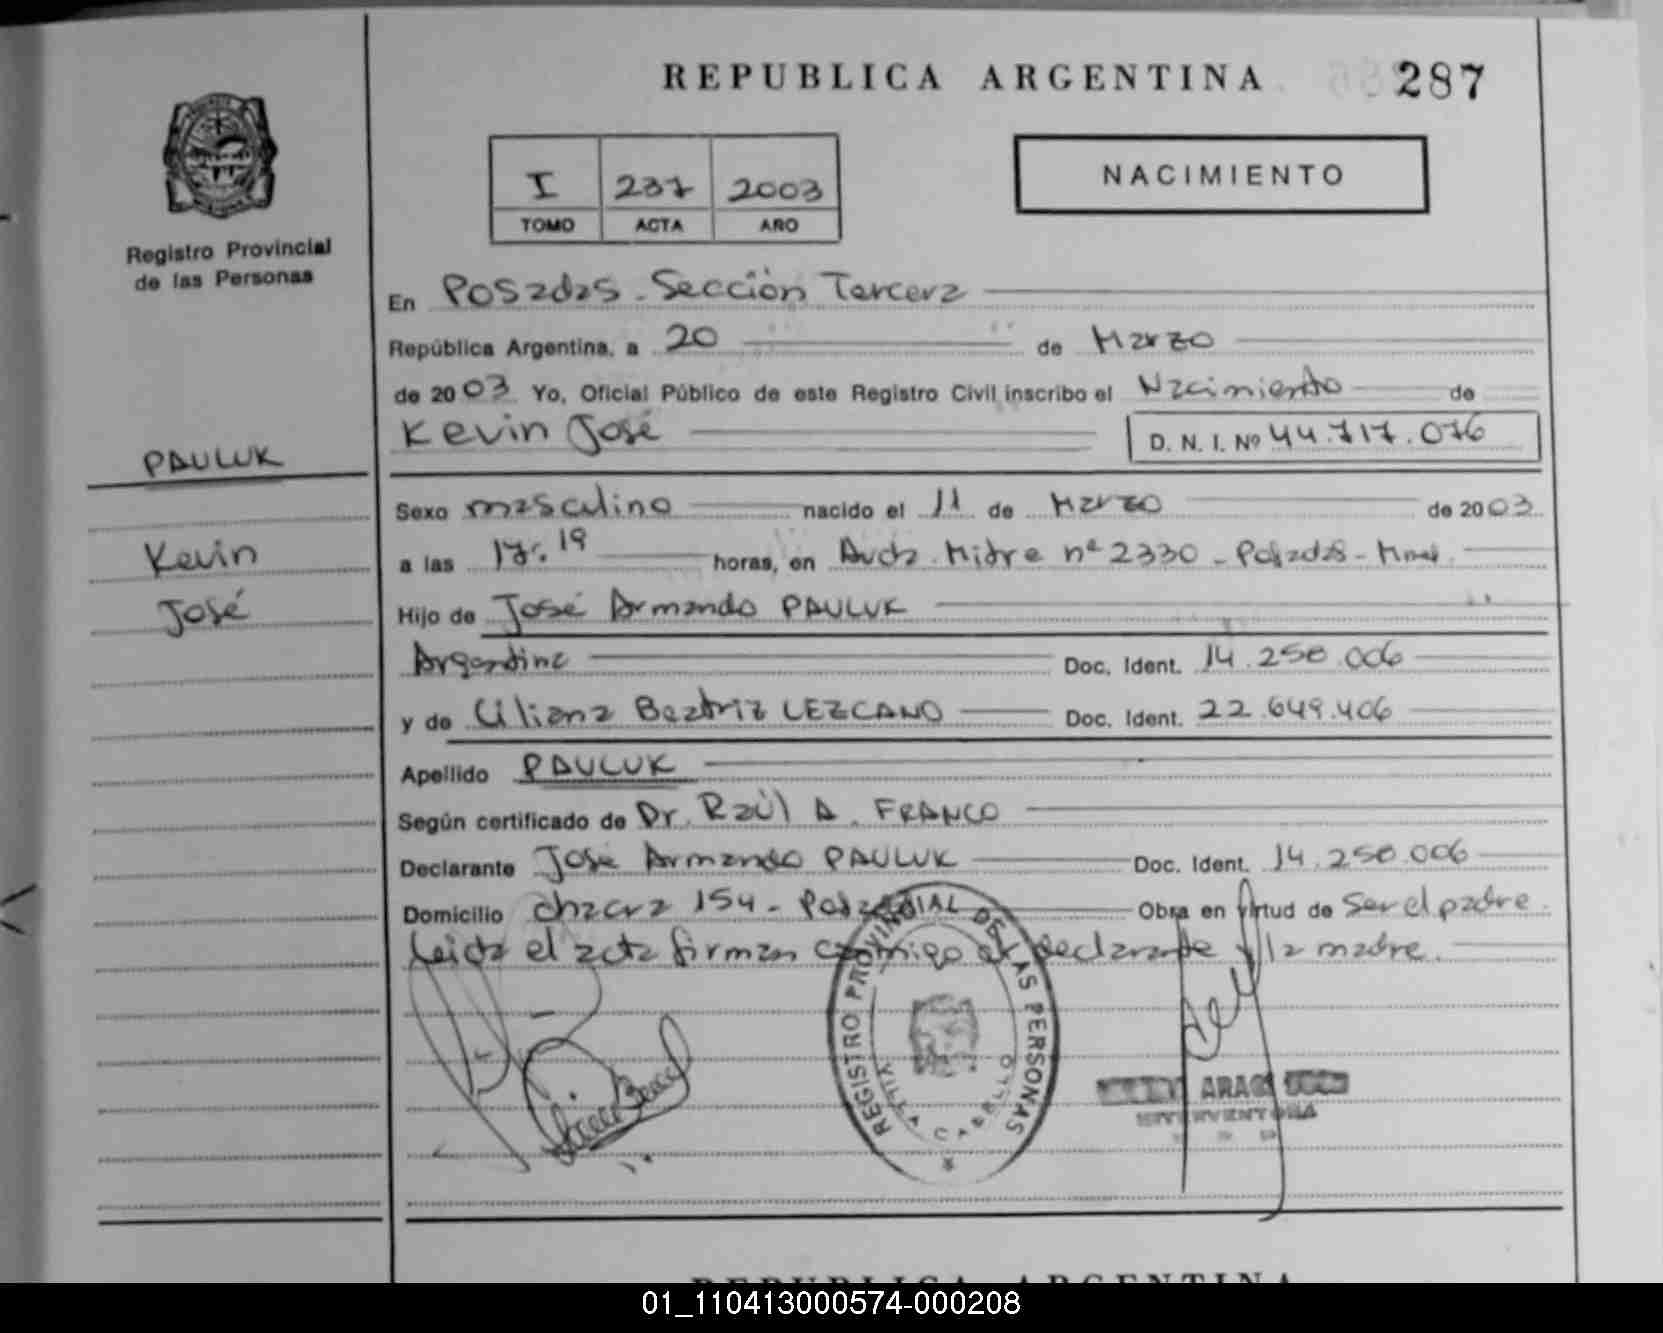 REPUBLICA ARGENTINA 287
I 237 2003
TOMO ACTA AÑO
NACIMIENTO
Registro Provincial
de las Personas
En Posadas - Sección Tercera
República Argentina, a 20 de Marzo
de 2003 Yo, Oficial Público de este Registro Civil inscribo el Nacimiento de
Kevin José D. N. I. Nº 44.717.076
PAULUK
Sexo masculino nacido el 11 de Marzo de 2003
Kevin
a las 17:19 horas, en Avda. Mitre nº 2330 - Posadas - Mnes.
José
Hijo de José Armando PAULUK
Argentina Doc. Ident. 14.250.006
y de Liliana Beatriz LEZCANO Doc. Ident. 22.649.406
Apellido PAULUK
Según certificado de Dr. Raúl A. FRANCO
Declarante José Armando PAULUK Doc. Ident. 14.250.006
Domicilio chacra 154 - Posadas Obra en virtud de Ser el padre.
Leida el acta firman conmigo el declarante y la madre.
REGISTRO PROVINCIAL DE LAS PERSONAS
VILLA CABELLO
INTERVENTORA
REPUBLICA ARGENTINA
01_110413000574-000208